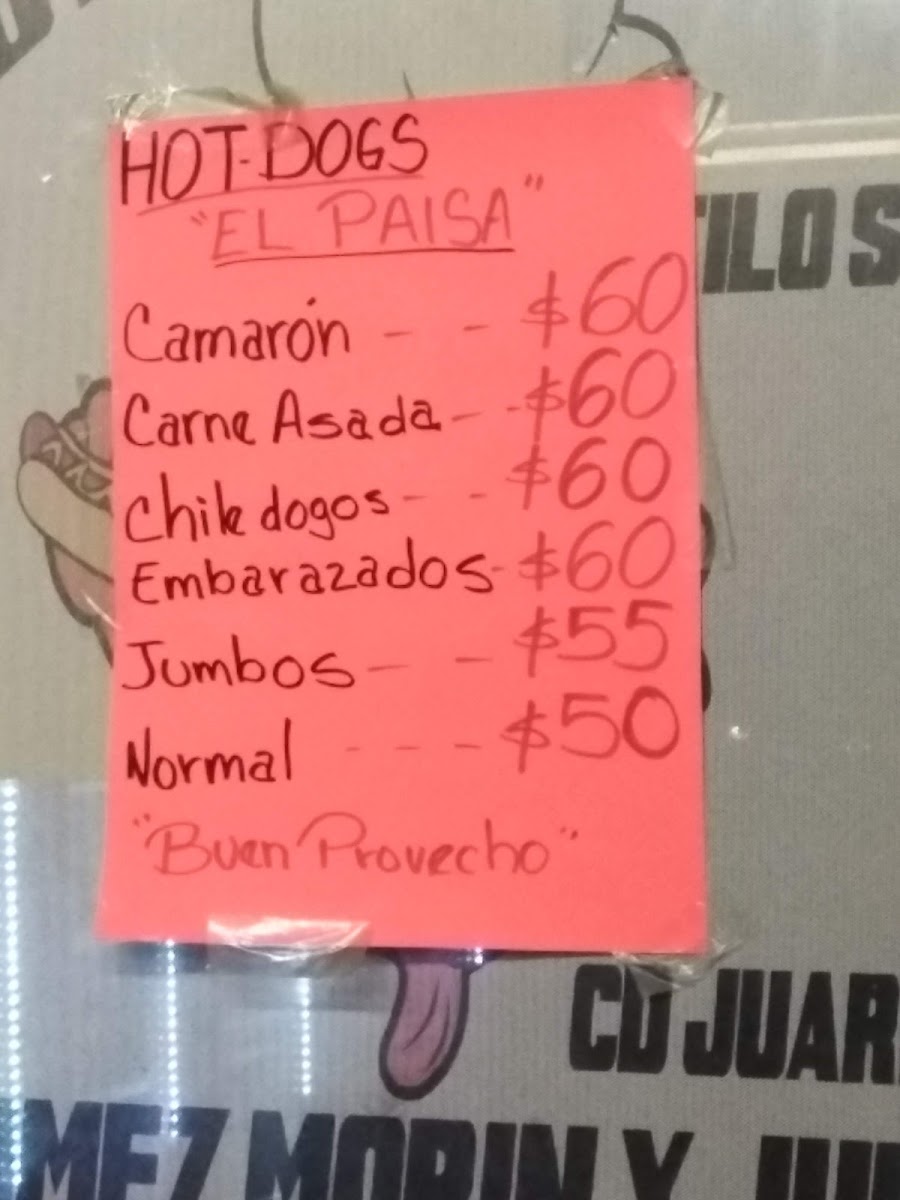 HOT-DOGS
"EL PAISA"
Camarón - - $60
Carne Asada - - $60
Chile dogos - - $60
Embarazados - $60
Jumbos - - $55
Normal - - - $50
"Buen Provecho"
ILO S
CD JUAR
MEZ MORIN Y